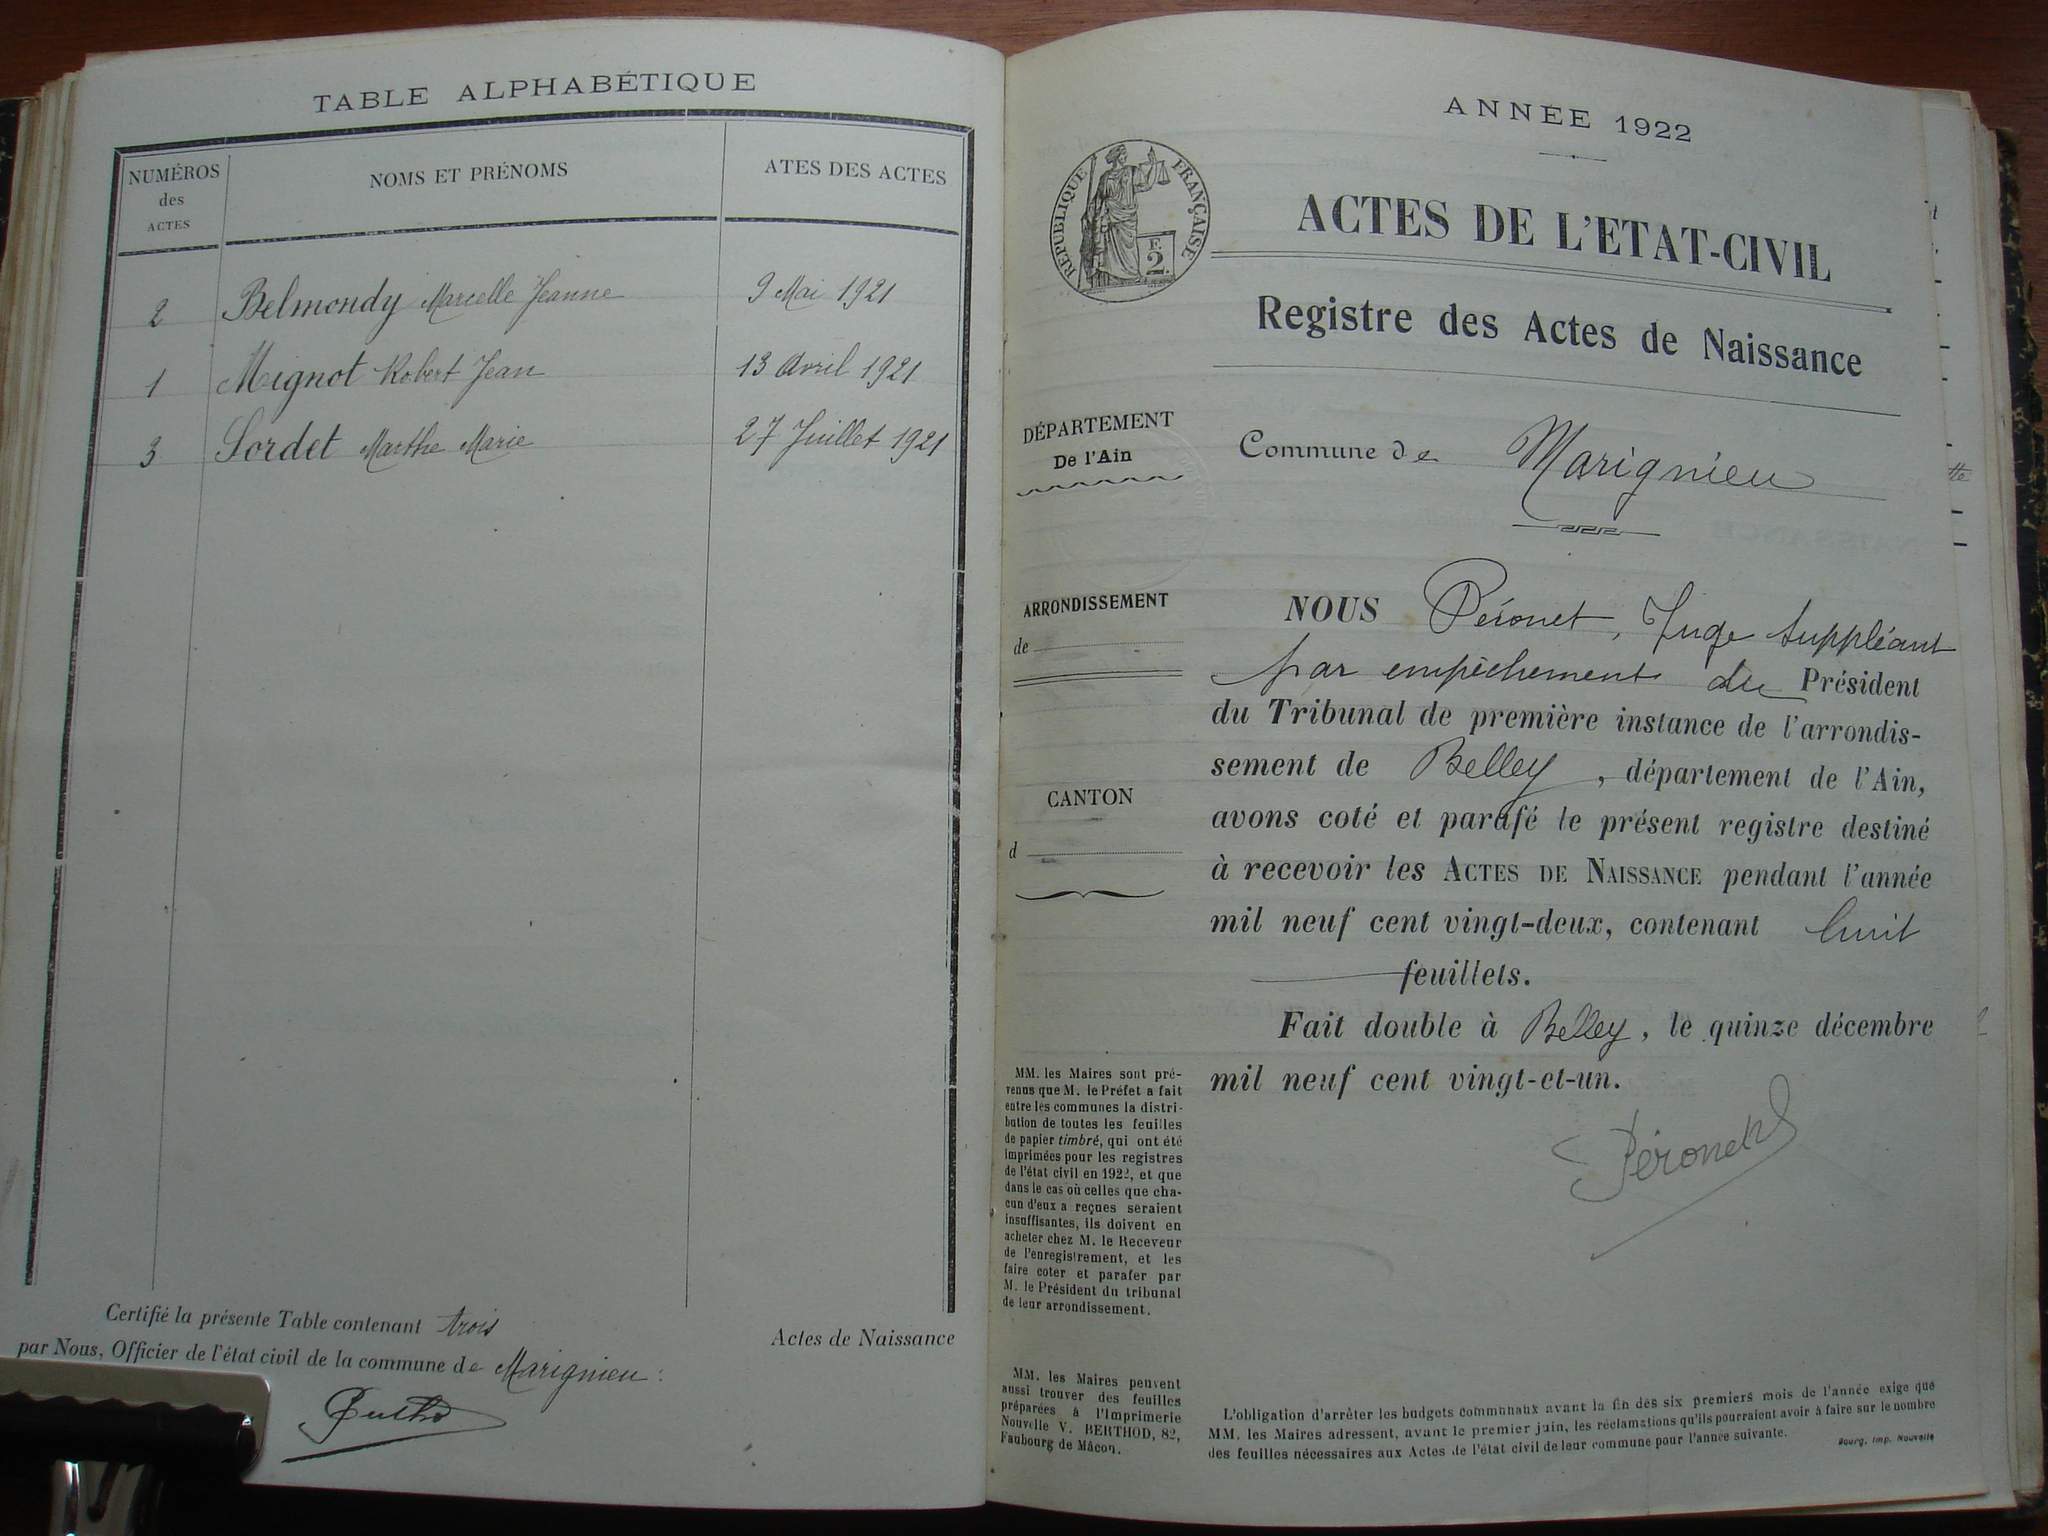 TABLE ALPHABÉTIQUE
NUMÉROS
des
ACTES
NOMS ET PRÉNOMS
ATES DES ACTES
2 Belmondy Marcelle Jeanne 9 Mai 1921
1 Mignot Robert Jean 13 Avril 1921
3 Sordet Marthe Marie 27 Juillet 1921
Certifié la présente Table contenant trois Actes de Naissance
par Nous, Officier de l'état civil de la commune de Marignieu :
ANNÉE 1922
RÉPUBLIQUE FRANÇAISE
F.
2.
ACTES DE L'ETAT-CIVIL
Registre des Actes de Naissance
DÉPARTEMENT
De l'Ain
Commune de Marignieu
ARRONDISSEMENT
de
CANTON
d
NOUS Péronet, Juge Suppléant
par empêchement du Président
du Tribunal de première instance de l'arrondis-
sement de Belley, département de l'Ain,
avons coté et parafé le présent registre destiné
à recevoir les ACTES DE NAISSANCE pendant l'année
mil neuf cent vingt-deux, contenant huit
feuillets.
Fait double à Belley, le quinze décembre
mil neuf cent vingt-et-un.
Péronet
MM. les Maires sont pré-
venus que M. le Préfet a fait
entre les communes la distri-
bution de toutes les feuilles
de papier timbré, qui ont été
imprimées pour les registres
de l'état civil en 1922, et que
dans le cas où celles que cha-
cun d'eux a reçues seraient
insuffisantes, ils doivent en
acheter chez M. le Receveur
de l'enregistrement, et les
faire coter et parafer par
M. le Président du tribunal
de leur arrondissement.
MM. les Maires peuvent
aussi trouver des feuilles
préparées à l'Imprimerie
Nouvelle V. BERTHOD, 82,
Faubourg de Mâcon.
L'obligation d'arrêter les budgets communaux avant la fin des six premiers mois de l'année exige que
MM. les Maires adressent, avant le premier juin, les réclamations qu'ils pourraient avoir à faire sur le nombre
des feuilles nécessaires aux Actes de l'état civil de leur commune pour l'année suivante.
Bourg, Imp. Nouvelle